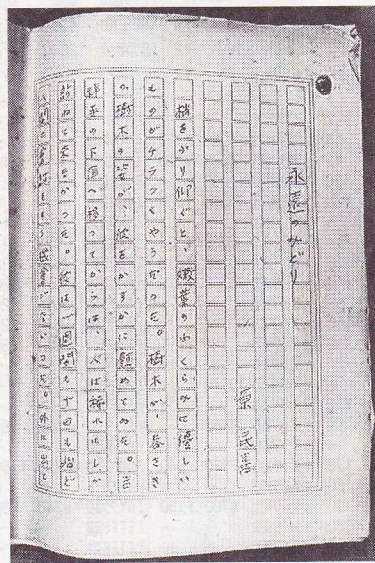 永遠のみどり
原民喜
梢をふり仰ぐと、嫩葉のふくらみに優しい
ものがチラつくやうだつた。樹木が、春さき
の樹木の姿が、彼をかすかに慰めてゐた。吉
祥寺の下宿へ移つてからは、人は稀れにしか
訪ねて来なかつた。彼は一週間も十日も殆ど
人間と会話をする機会がなかつた。外に出て